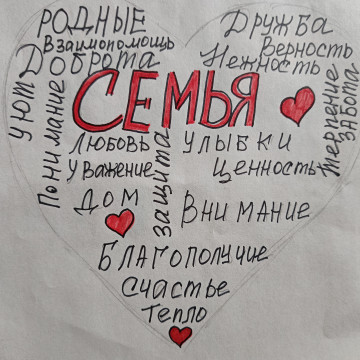 РОДНЫЕ
Взаимопомощь
Доброта
Дружба
Верность
Нежность
СЕМЬЯ
уют
Понимание
Терпение
забота
Любовь
Уважение
Дом
защита
Улыбки
Ценность
Внимание
Благополучие
Счастье
Тепло